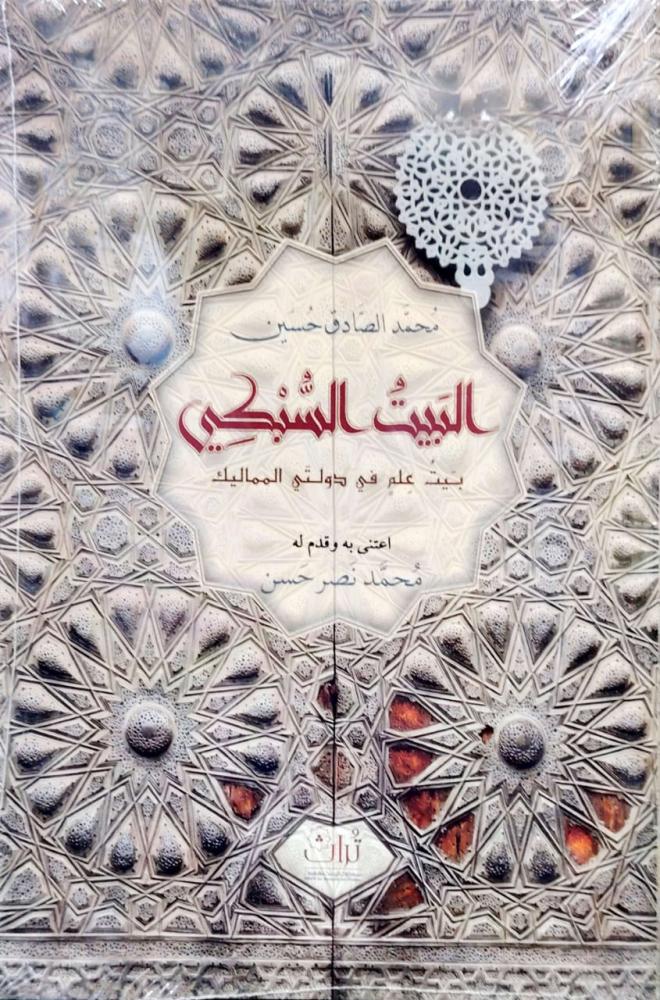 مُحمَّد الصَّادق حُسَين
البَيتُ السُّبْكِي
بَيتُ عِلمٍ في دولتَي المماليك
اعتنى به وقدم له
مُحمَّد نَصر حَسن
تُراث